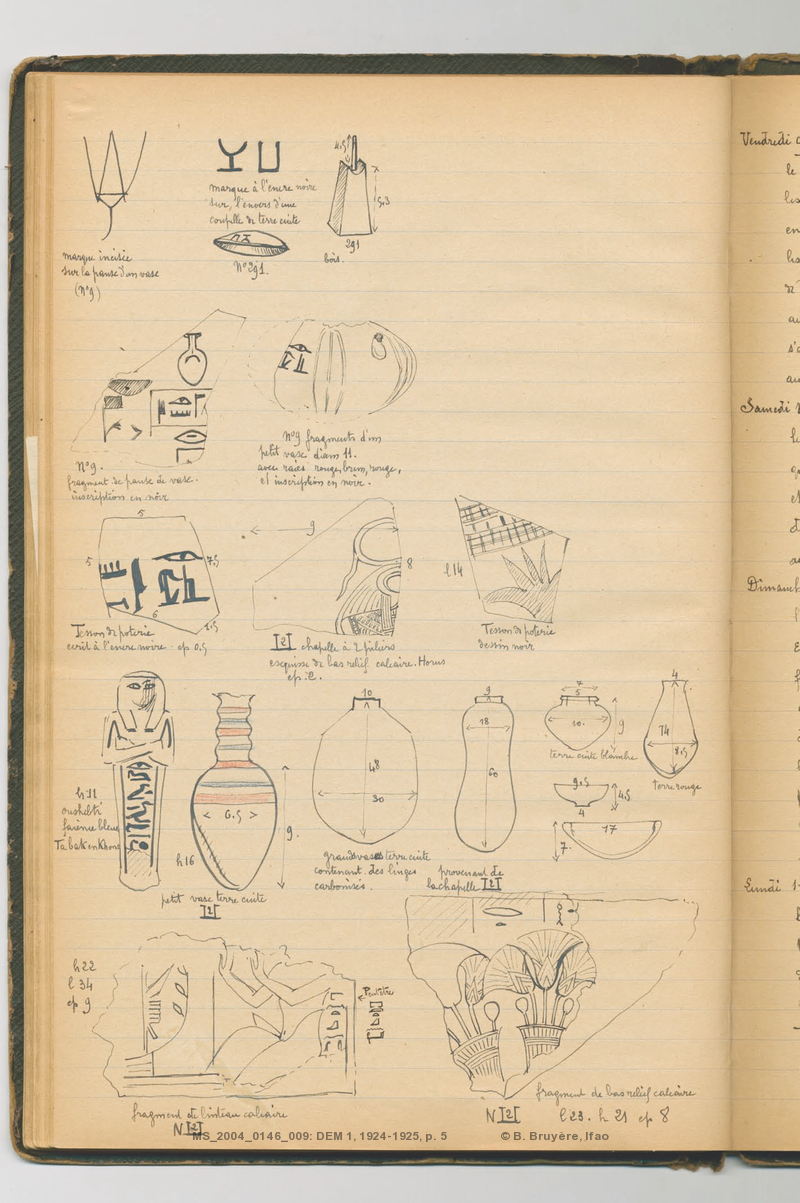 marque incisée
sur la panse d'un vase
(N°9)
marque à l'encre noire
sur l'envers d'une
coupelle de terre cuite
N°291.
4.5
5,3
291
bois.
N°9.
fragment de panse de vase.
inscription en noir
N°9 fragments d'un
petit vase diam 11.
avec raies rouge, brun, rouge,
et inscription en noir.
5
5
7,5
6
Tesson de poterie
écrit à l'encre noire - ep 0,5
9
8
chapelle à 2 piliers
esquisse de bas relief calcaire. Horus
l 14
Tesson de poterie
dessin noir
h 11
oushebti
faïence bleue
h 16
6.5
9.
petit vase terre cuite
10
48
30
grands vases terre cuite
contenant des linges
carbonisés.
9
18
60
provenant de
la chapelle
7
5
10.
9
terre cuite blanche
9,5
4,5
4
17
7.
4
14
8,5
Terre rouge
h 22
l 34
ep 9
Peut être
fragment de linteau calcaire
fragment de bas relief calcaire
l 23. h 21 ep 8
Vendredi
le
en
au
s'a
au
Samedi
et
Dimanch
Lundi 1
MS_2004_0146_009: DEM 1, 1924-1925, p. 5
© B. Bruyère, Ifao